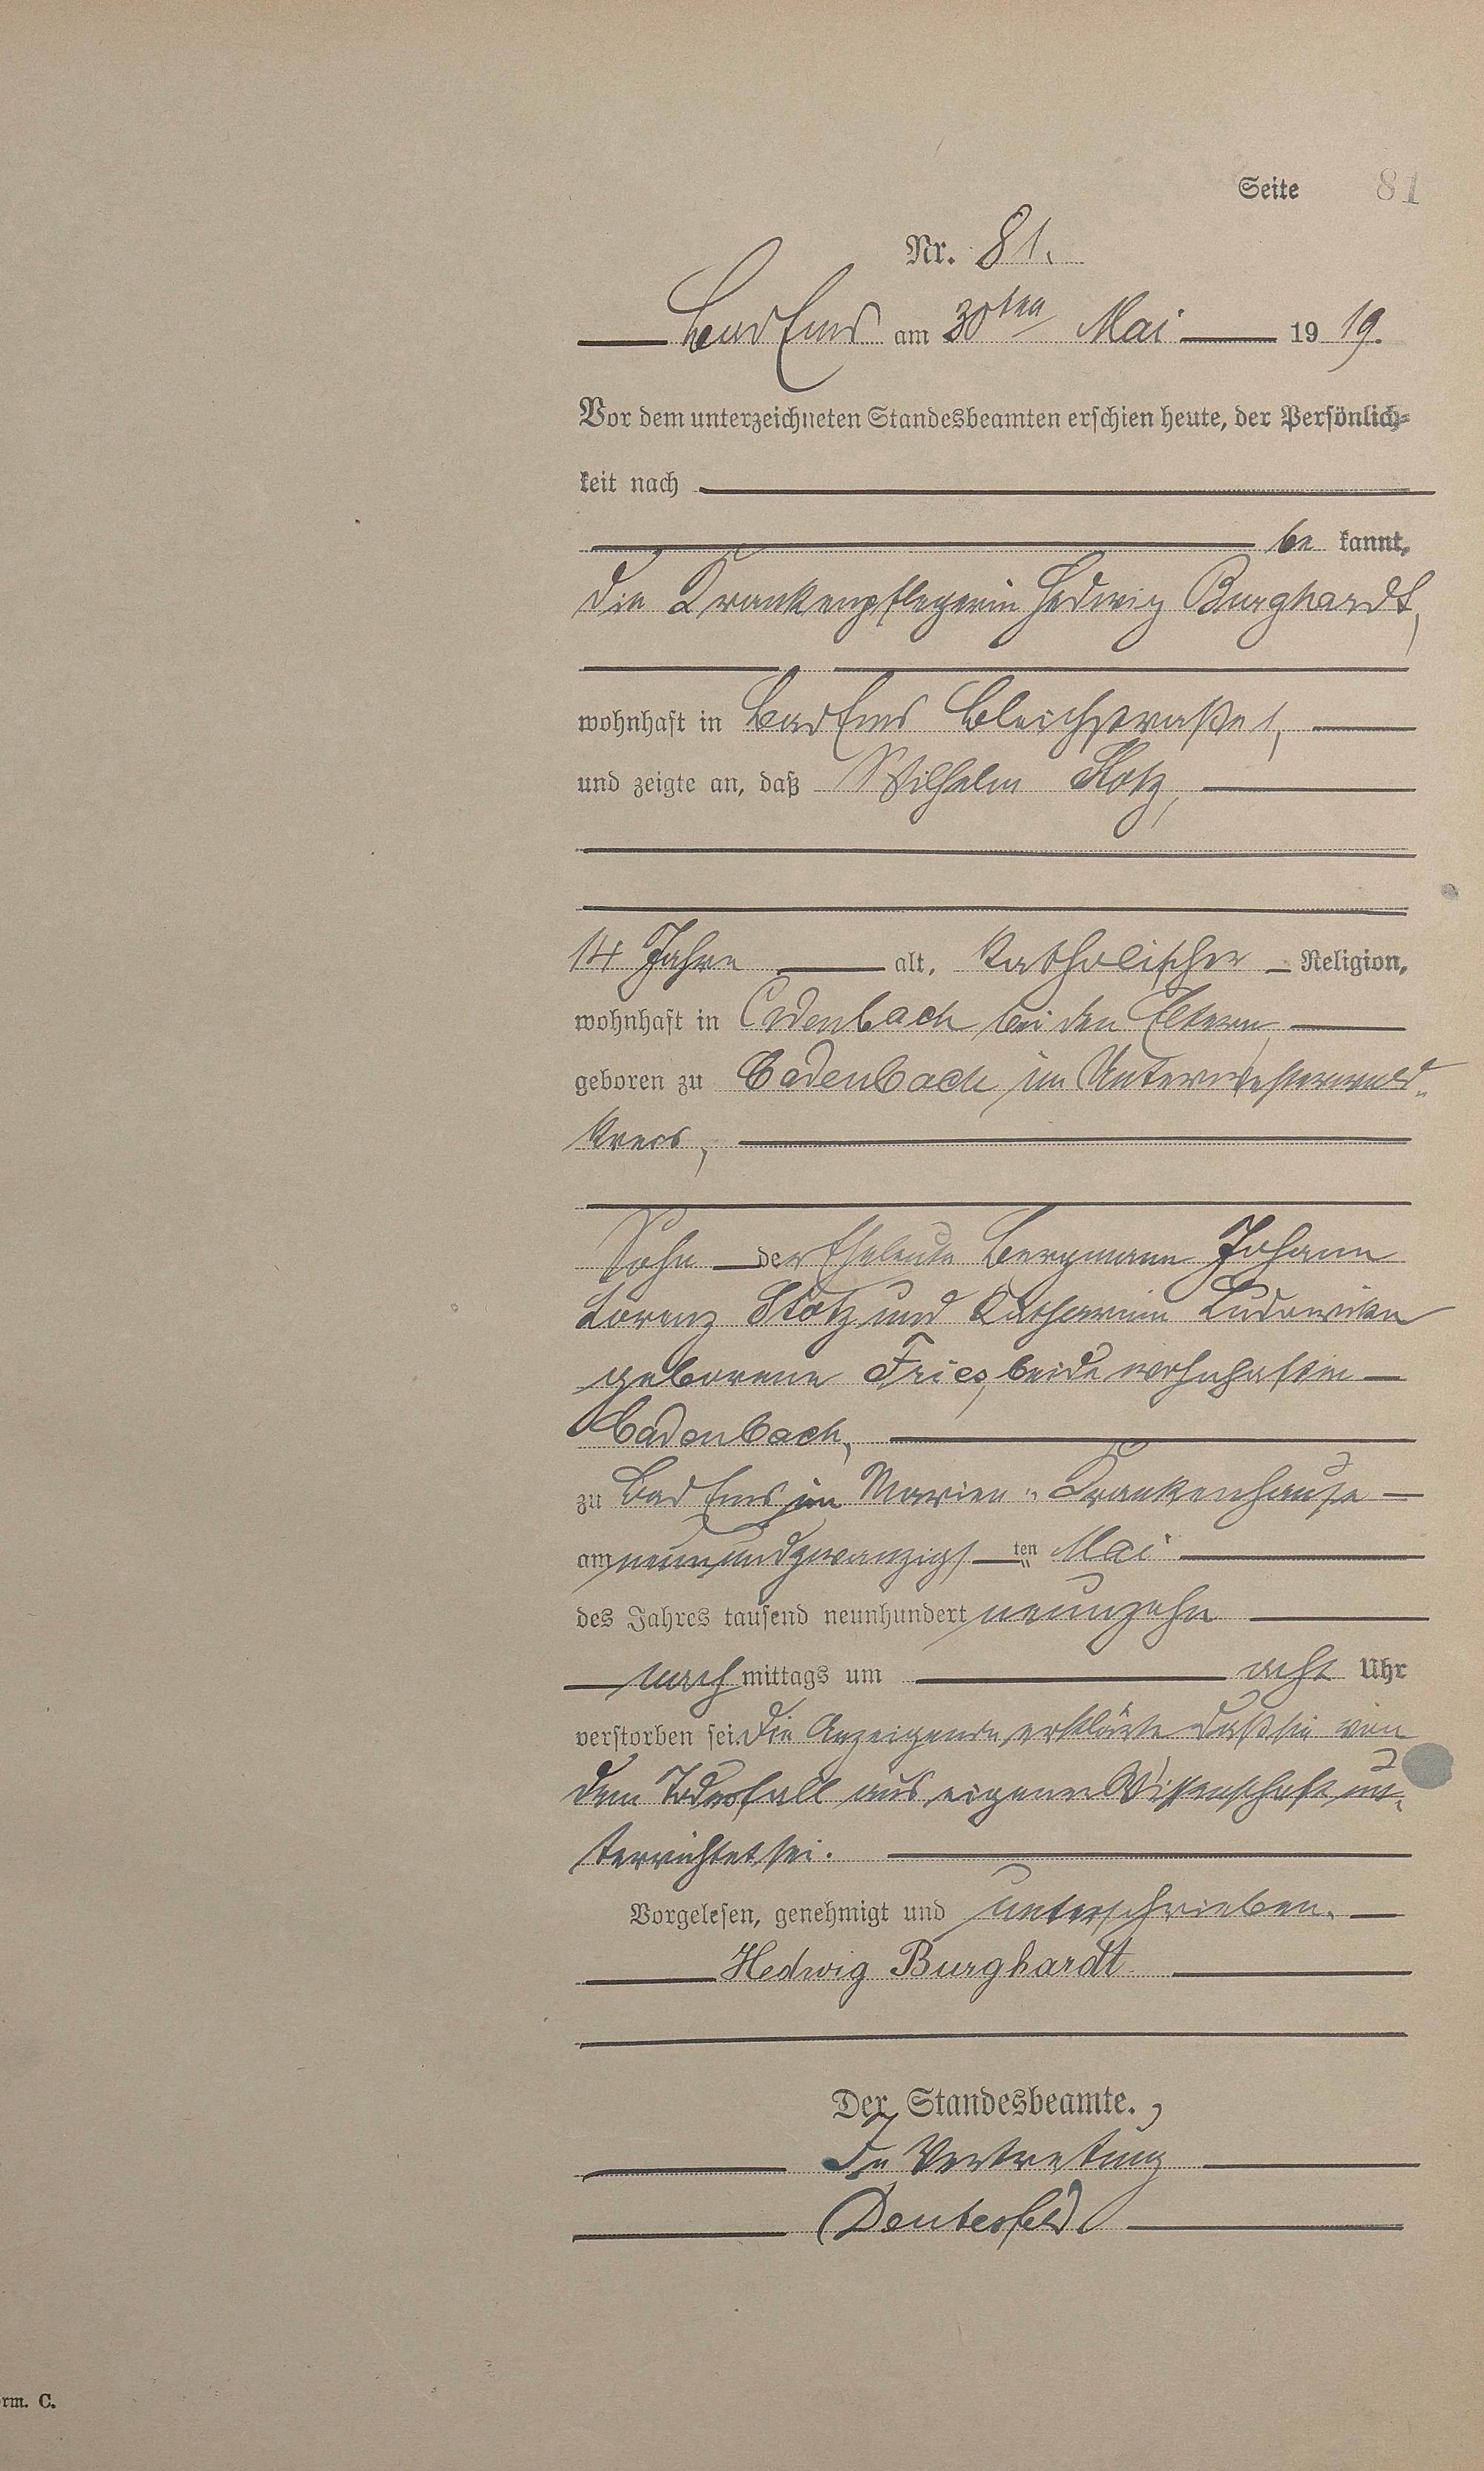 Seite 81
Nr. 81.
Bad Ems am 30ten Mai 1919.
Vor dem unterzeichneten Standesbeamten erschien heute, der Persönlich-
keit nach
be kannt,
die Krankenpflegerin Hedwig Burghardt,
wohnhaft in Bad Ems Bleichstraße 1,
und zeigte an, daß Wilhelm
14 Jahre alt, katholischer Religion,
wohnhaft in Cadenbach bei den Eltern
geboren zu Cadenbach im Unterwesterwald-
kreis,
Sohn der Eheleute Bergmann Johann
Lorenz und Katharina
geborene Fries, beide wohnhaft in
Cadenbach,
zu Bad Ems im Marien-Krankenhause
am neunundzwanzigsten Mai
des Jahres tausend neunhundert neunzehn
nachmittags um acht Uhr
verstorben sei. Die Anzeigende erklärte daß sie von
dem Todesfall aus eigener Wissenschaft un-
terrichtet sei.
Vorgelesen, genehmigt und unterschrieben.
Hedwig Burghardt
Der Standesbeamte.
In Vertretung
rm. C.